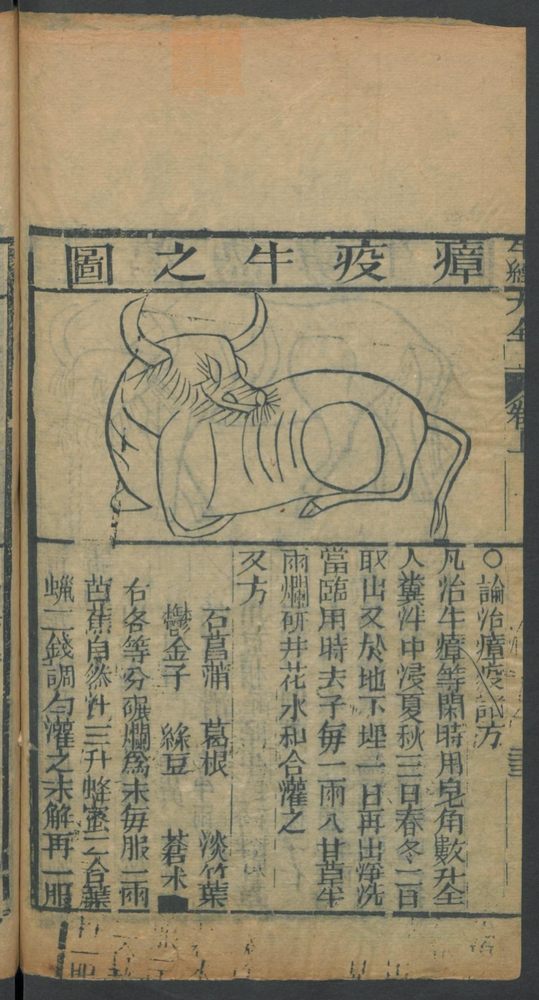 瘴疫牛之圖
牛經大全
〇論治瘴疫証方
凡治牛瘴等閑時用皂角數升全
人糞泮中浸夏秋三日春冬二日
取出又於地下埋一日再出淨洗
當臨用時去子每一兩入甘草半
兩爛研井花水和合灌之
又方
石菖蒲 葛根 淡竹葉
鬱金子 綠豆 蒼术
右各等分碾爛爲末每服二兩
芭蕉自然汁三升蜂蜜二合黃
蠟二錢調勻灌之未解再一服